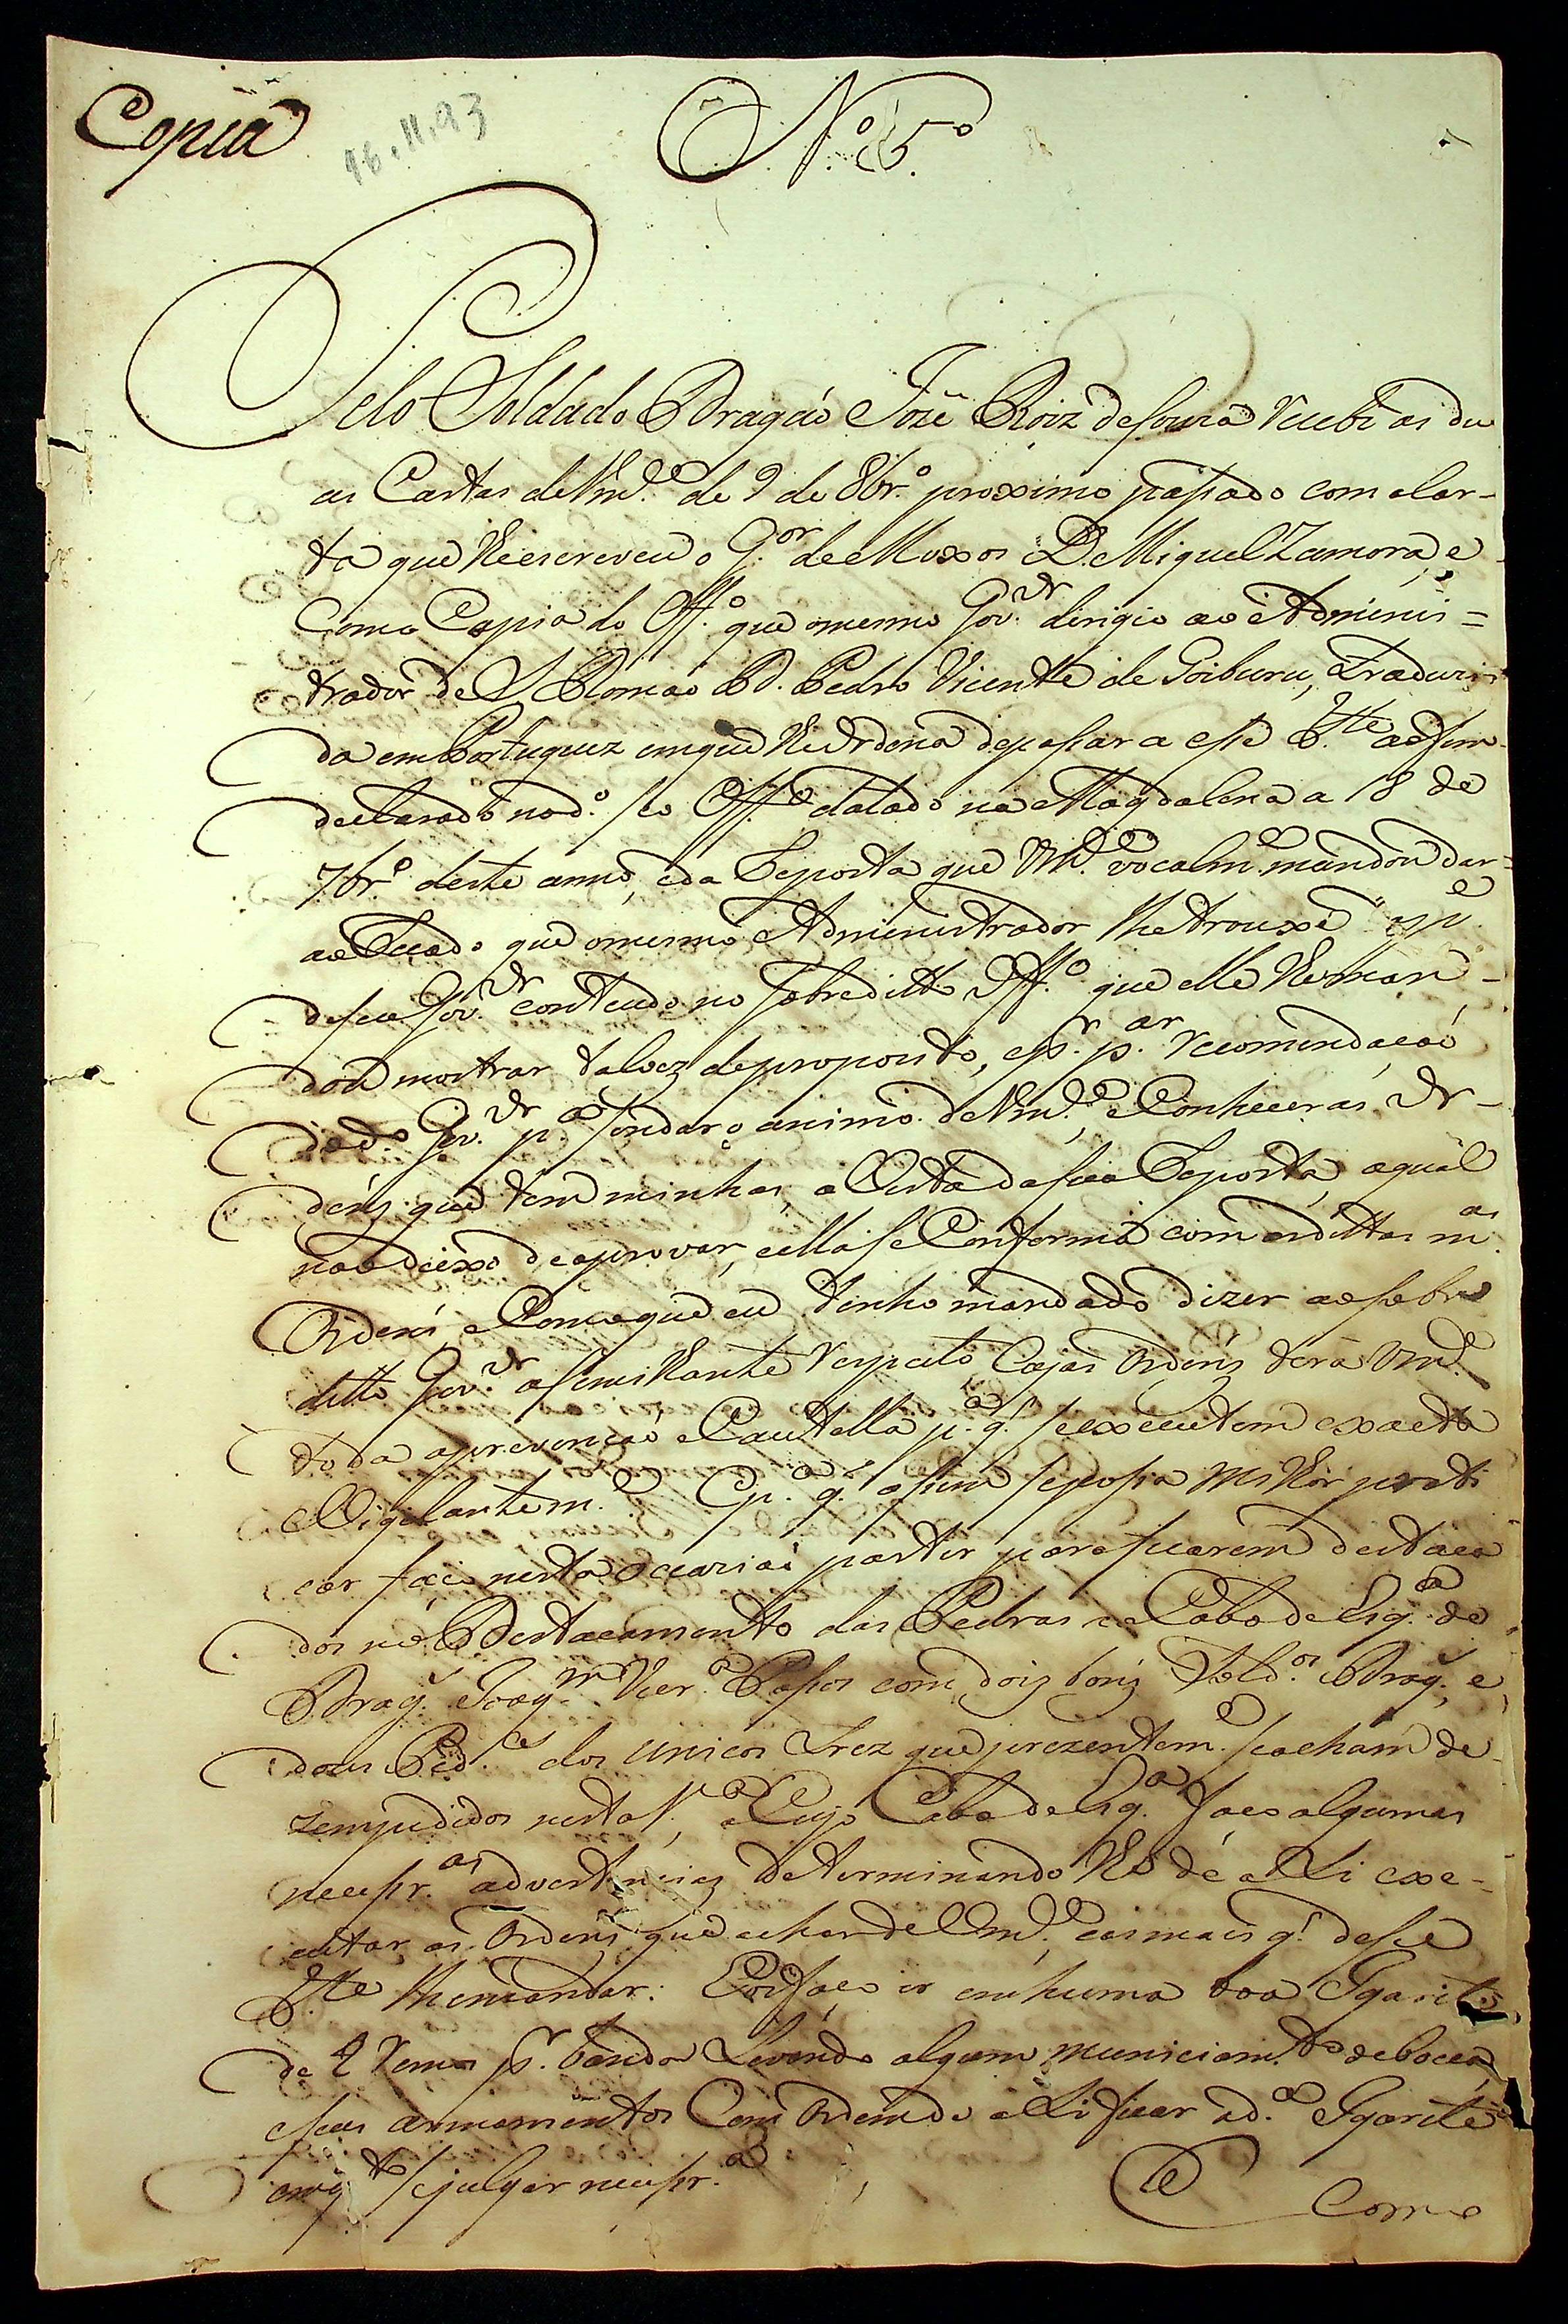 Copia
16.11.93
N.º 5º
Pelo Soldado Dragaõ Joze Roiz de Souza recebi as du
as Cartas de Vm.ce de 9 de 8br.º proximo passado com a Car-
ta que lhe escreveu o G.or de Moxos D. Miguel Zamora, e
Com a Copia do Off.º que o mesmo Gov.or dirigio ao Adminis=
trador de S. Romaõ D. Pedro Vicente de Goiburu, Traduzi
da em Portuguez em que lhe Ordena de passar a esse D.tto ao fim
declarado no d.º seo Off.º datado na Magdalena a 18 de
7br.º deste anno, e da Reposta que Vm.ce vocalm.e mandou dar=
ao Recado que o mesmo Administrador lhe trouxe
de seu Gov.or contendo no sobreditto Off.º que elle lhe man-
dou mostrar talvez de proposito, e p.r p.ar recomendaçaõ
do d.º Gov.or p.a sondar o animo de Vm.ce, e Conhecer as Or-
dens que tem minhas, a Vista da sua Reposta, a qual
naõ deixo de aprovar, ella se Conforma com as dittas m.as
Ordens, e Com o que eu tenho mandado dizer ao sobre
ditto Gov.or a semilhante respeito Cujas Ordens terá Vm.ce
toda a prevençaõ e Cautella p.a q.' se executem exacta
e Vigilantem.e E p.a q.' assim se possa milhor prati
car faço nesta occaziaõ partir para ficarem destaca
dos no Destacamento das Pedras o Cabo de Esq.a de
Drag.' Joaq.m Vier.a Passos com doiz bonz Sold.os Drag.', e
dous Ped.es dos unicos Trez que prezentem.e se acham de-
zempedidos nesta V.a, a Cujo Cabo de Esq.a faço algumas
necessr.as advertencias determinando lhe dê alli exe-
cutar as Ordens que achar de Vm.ce, e as mais q.' desse
D.tto lhe mandar: Eos faço ir em huma boa Igarité,
de 2 remos p.r banda Levando algum municiam.to de boca,
e seus armamentos Com Ordem de alli ficar a d.a Igarité
em q.to se julgar necessr.a
Com o